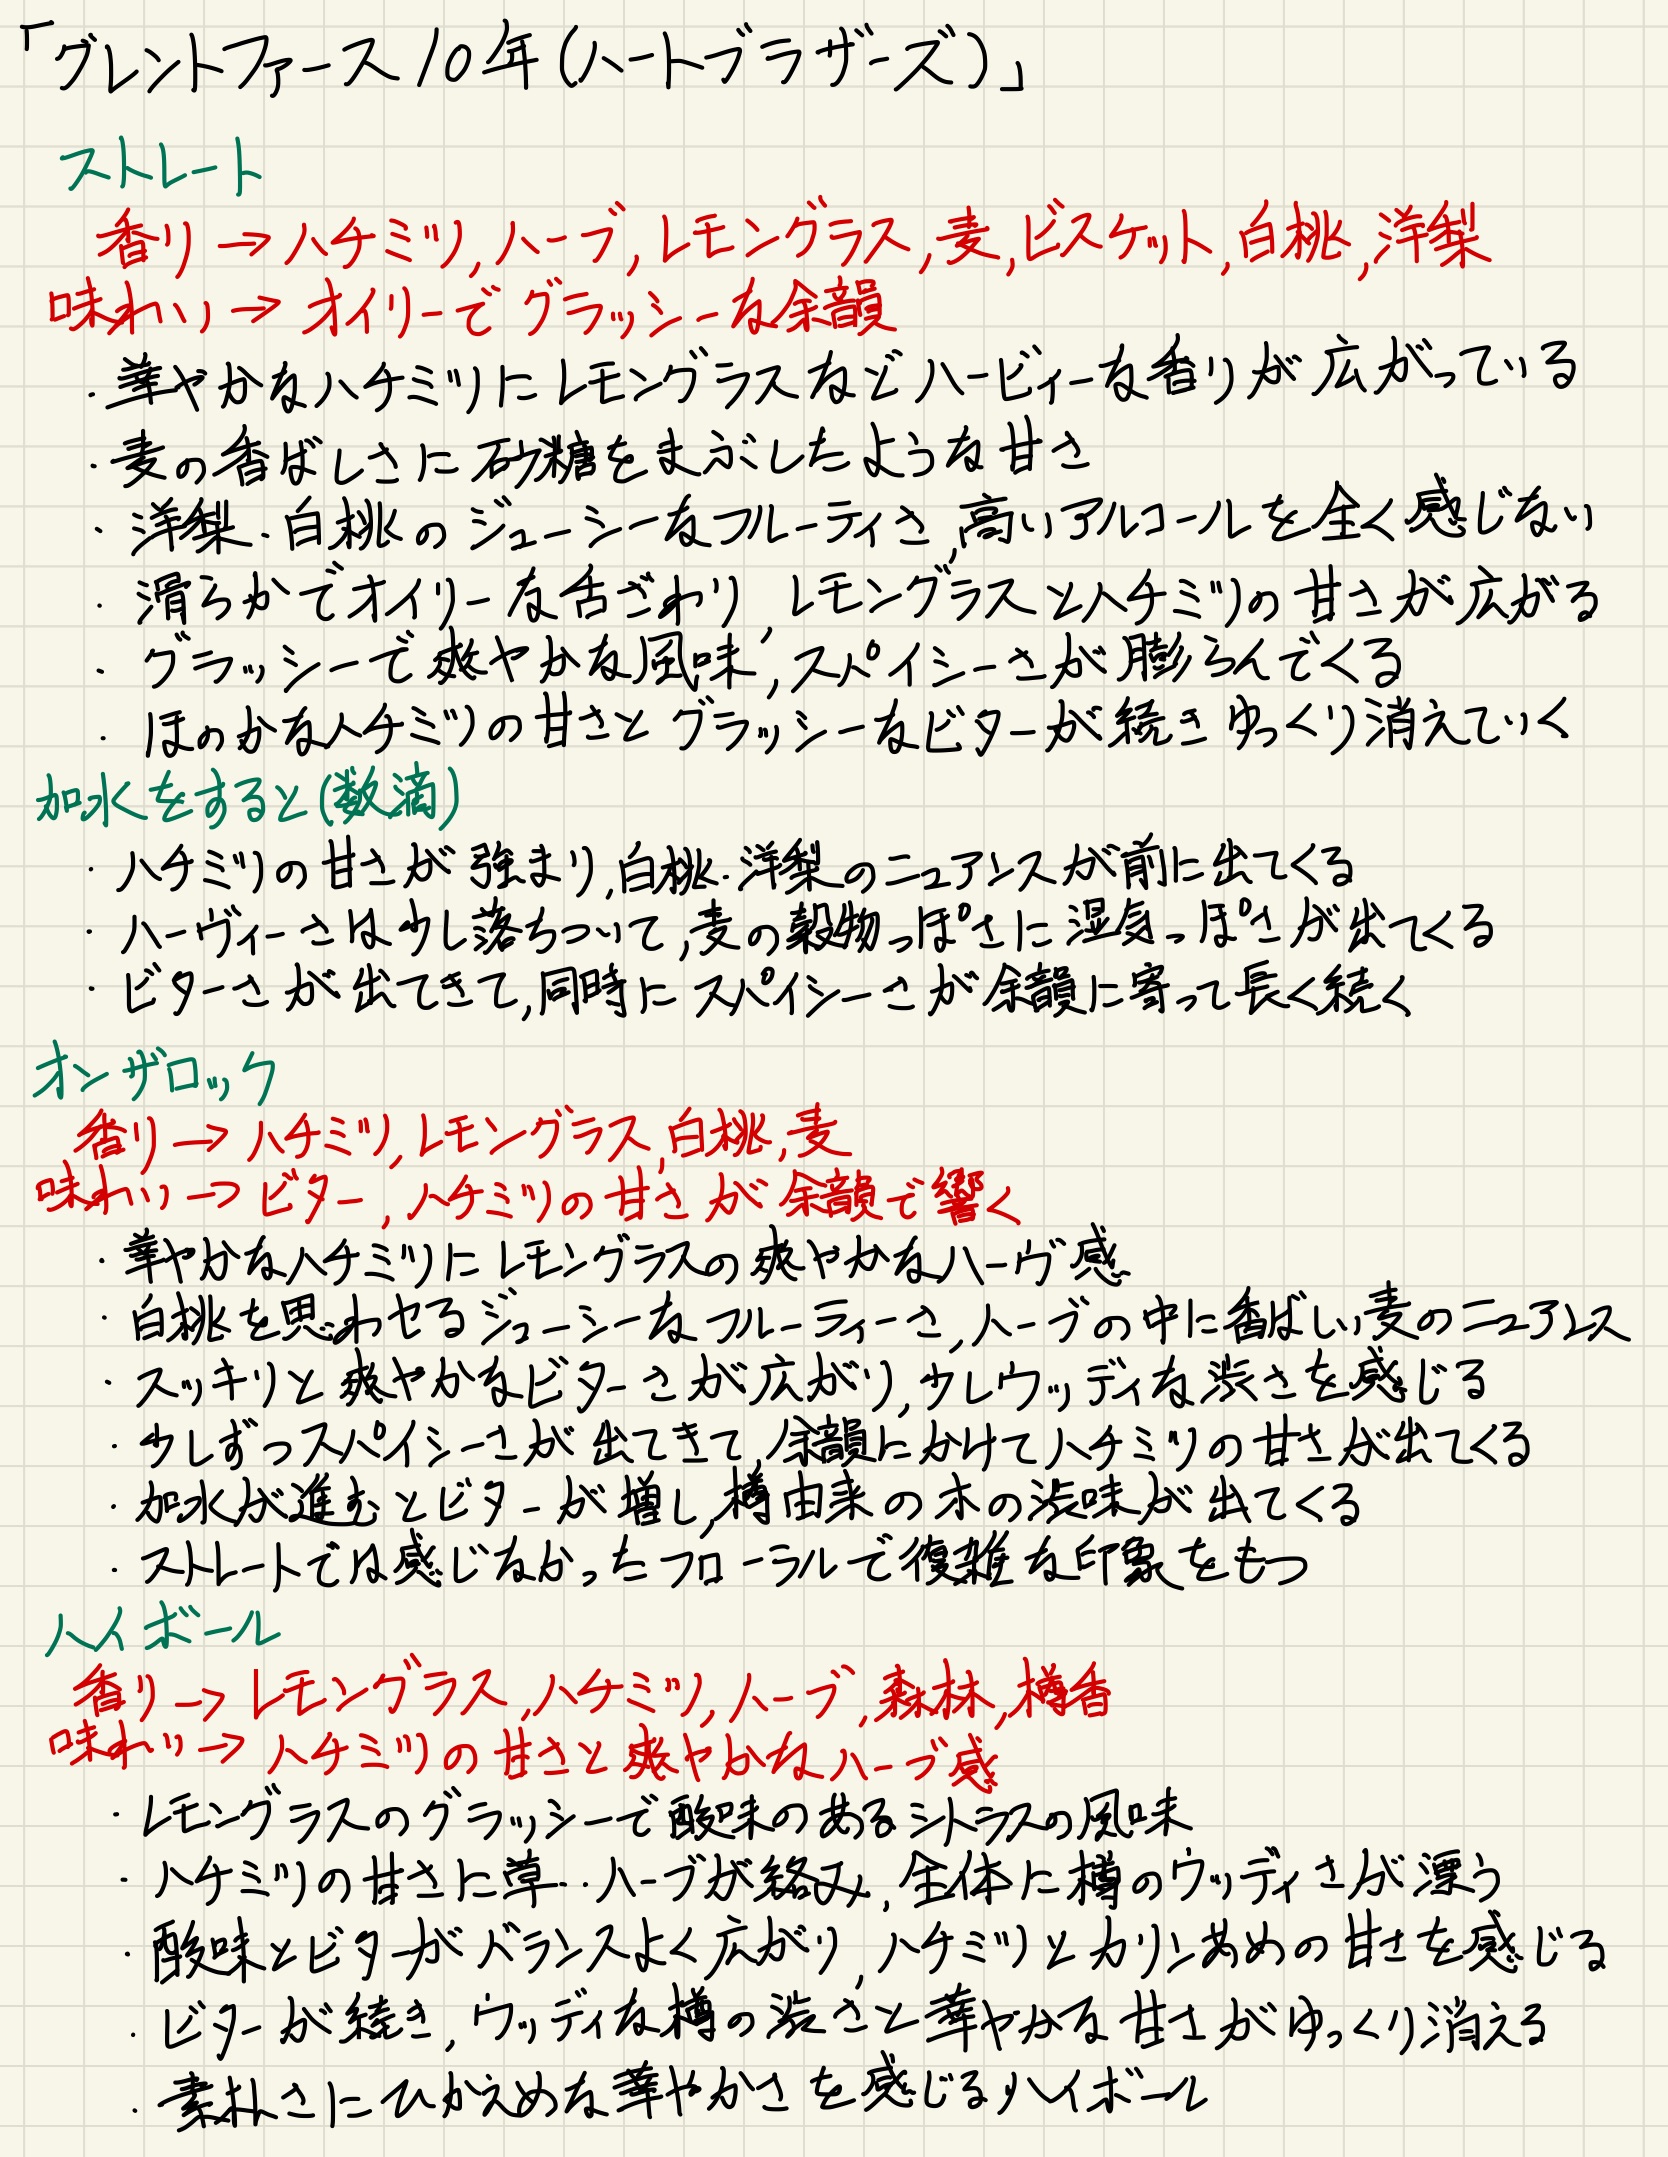 「グレントファース10年(ハートブラザーズ)」
ストレート
香り→ハチミツ,ハーブ,レモングラス,麦,ビスケット,白桃,洋梨
味わい→オイリーでグラッシーな余韻
・華やかなハチミツにレモングラスなどハービィーな香りが広がっている
・麦の香ばしさに砂糖をまぶしたような甘さ
・洋梨・白桃のジューシーなフルーティさ,高いアルコールを全く感じない
・滑らかでオイリーな舌ざわり,レモングラスとハチミツの甘さが広がる
・グラッシーで爽やかな風味,スパイシーさが膨らんでくる
・ほのかなハチミツの甘さとグラッシーなビターが続きゆっくり消えていく
加水をすると(数滴)
・ハチミツの甘さが強まり,白桃・洋梨のニュアンスが前に出てくる
・ハーヴィーさは少し落ちついて,麦の穀物っぽさに湿気っぽさが出てくる
・ビターさが出てきて,同時にスパイシーさが余韻に寄って長く続く
オンザロック
香り→ハチミツ,レモングラス,白桃,麦
味わい→ビター,ハチミツの甘さが余韻で響く
・華やかなハチミツにレモングラスの爽やかなハーヴ感
・白桃を思わせるジューシーなフルーティーさ,ハーブの中に香ばしい麦のニュアンス
・スッキリと爽やかなビターさが広がり,少しウッディな渋さを感じる
・少しずつスパイシーさが出てきて,余韻にかけてハチミツの甘さが出てくる
・加水が進むとビターが増し,樽由来の木の渋味が出てくる
・ストレートでは感じなかったフローラルで複雑な印象をもつ
ハイボール
香り→レモングラス,ハチミツ,ハーブ,森林,樽香
味わい→ハチミツの甘さと爽やかなハーブ感
・レモングラスのグラッシーで酸味のあるシトラスの風味
・ハチミツの甘さに草・ハーブが絡み,全体に樽のウッディさが漂う
・酸味とビターがバランスよく広がり,ハチミツとカリンあめの甘さを感じる
・ビターが続き,ウッディな樽の渋さと華やかな甘さがゆっくり消える
・素朴さにひかえめな華やかさを感じるハイボール